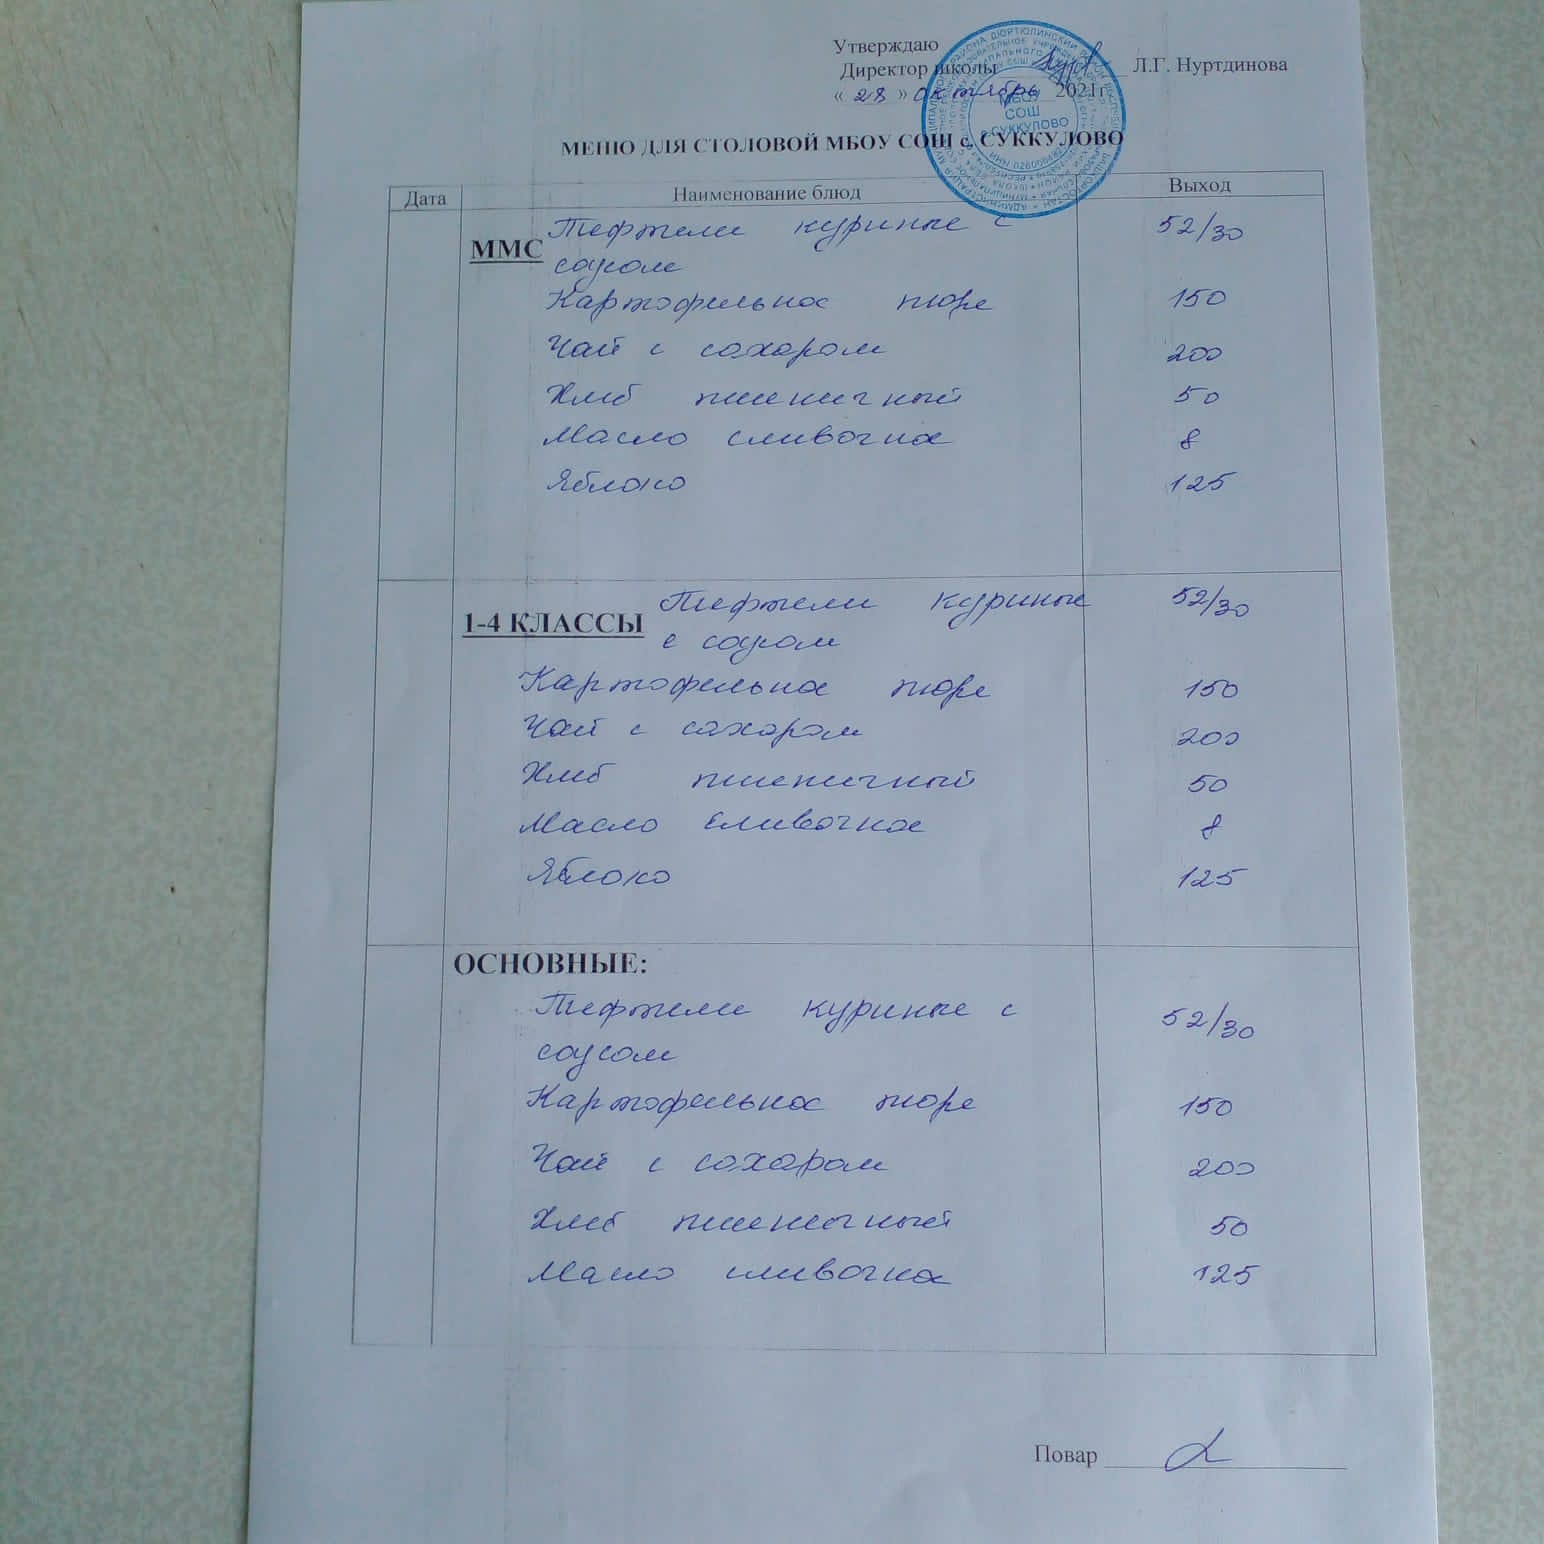 Утверждаю
Директор школы Л.Г. Нуртдинова
« 28 » октябрь 2021г
МБОУ
СОШ
с.СУККУЛОВО
МЕНЮ ДЛЯ СТОЛОВОЙ МБОУ СОШ с. СУККУЛОВО
Дата Наименование блюд Выход
ММС Тефтели куриные с 52/30
соусом
Картофельное пюре 150
Чай с сахаром 200
Хлеб пшеничный 50
Масло сливочное 8
Яблоко 125
1-4 КЛАССЫ Тефтели куриные 52/30
с соусом
Картофельное пюре 150
Чай с сахаром 200
Хлеб пшеничный 50
Масло сливочное 8
Яблоко 125
ОСНОВНЫЕ:
Тефтели куриные с 52/30
соусом
Картофельное пюре 150
Чай с сахаром 200
Хлеб пшеничный 50
Масло сливочное 125
Повар